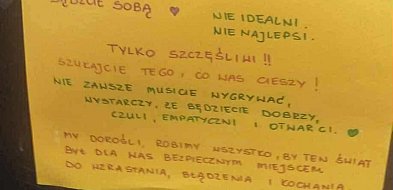 BĄDŹCIE SOBĄ
NIE IDEALNI.
NIE NAJLEPSI.
TYLKO SZCZĘŚLIWI!!
SZUKAJCIE TEGO, CO WAS CIESZY!
NIE ZAWSZE MUSICIE WYGRYWAĆ,
WYSTARCZY, ŻE BĘDZIECIE DOBRZY,
CZULI, EMPATYCZNI I OTWARCI.
MY DOROŚLI, ROBIMY WSZYSTKO, BY TEN ŚWIAT
BYŁ DLA WAS BEZPIECZNYM MIEJSCEM
DO WZRASTANIA, BŁĄDZENIA I KOCHANIA